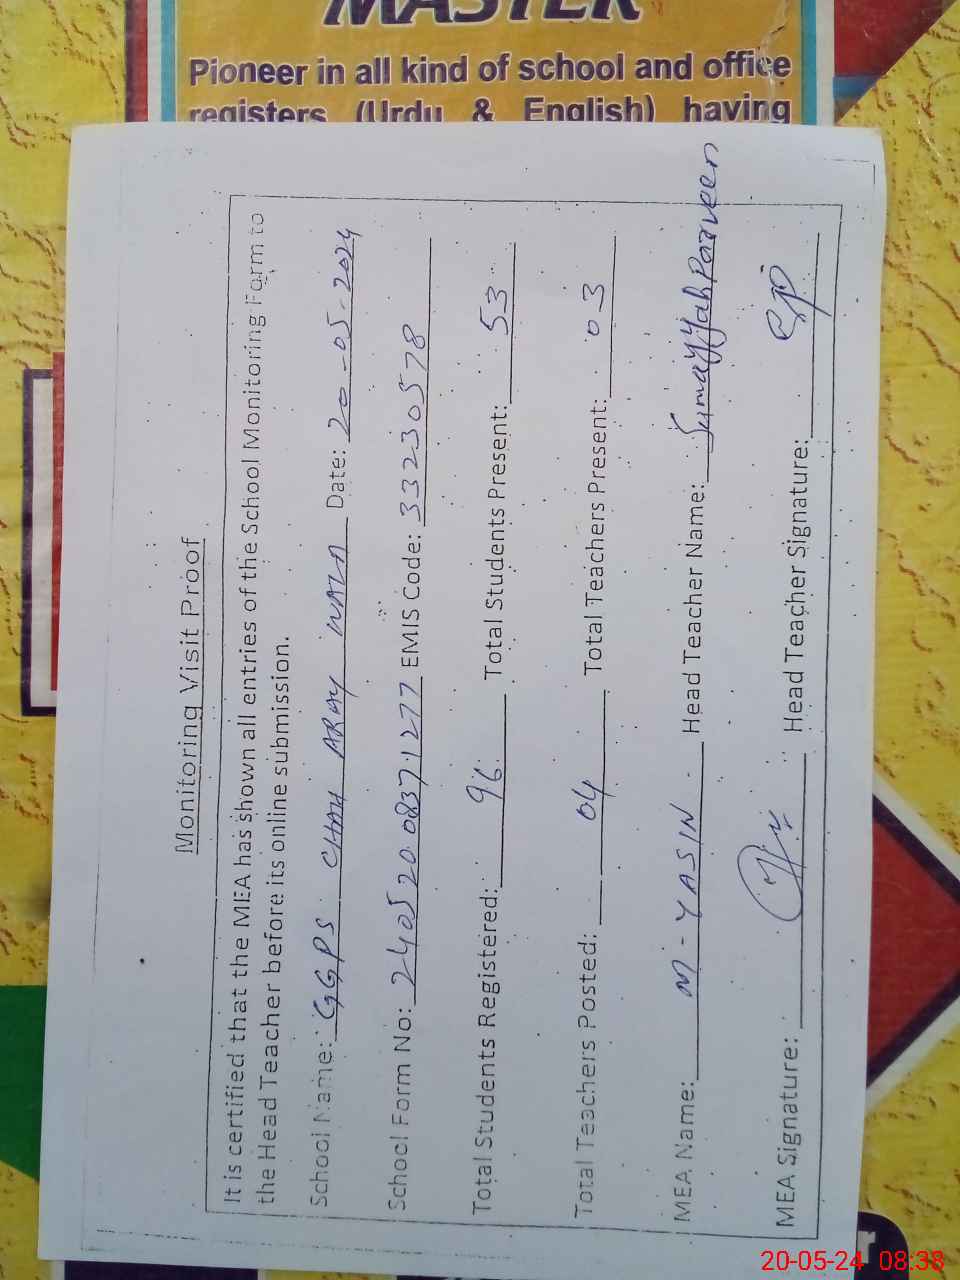 MASTER
Pioneer in all kind of school and office
registers (Urdu & English) having
Monitoring Visit Proof
It is certified that the MEA has shown all entries of the School Monitoring Form to
the Head Teacher before its online submission.
School Name: GGPS CHAH ARAY WALA Date: 20-05-2024
School Form No: 24052008371277 EMIS Code: 33230578
Total Students Registered: 96 Total Students Present: 53
Total Teachers Posted: 04 Total Teachers Present: 03
MEA Name: M-YASIN Head Teacher Name: Sumayyah Parveen
MEA Signature: Head Teacher Signature: SP
20-05-24 08:38